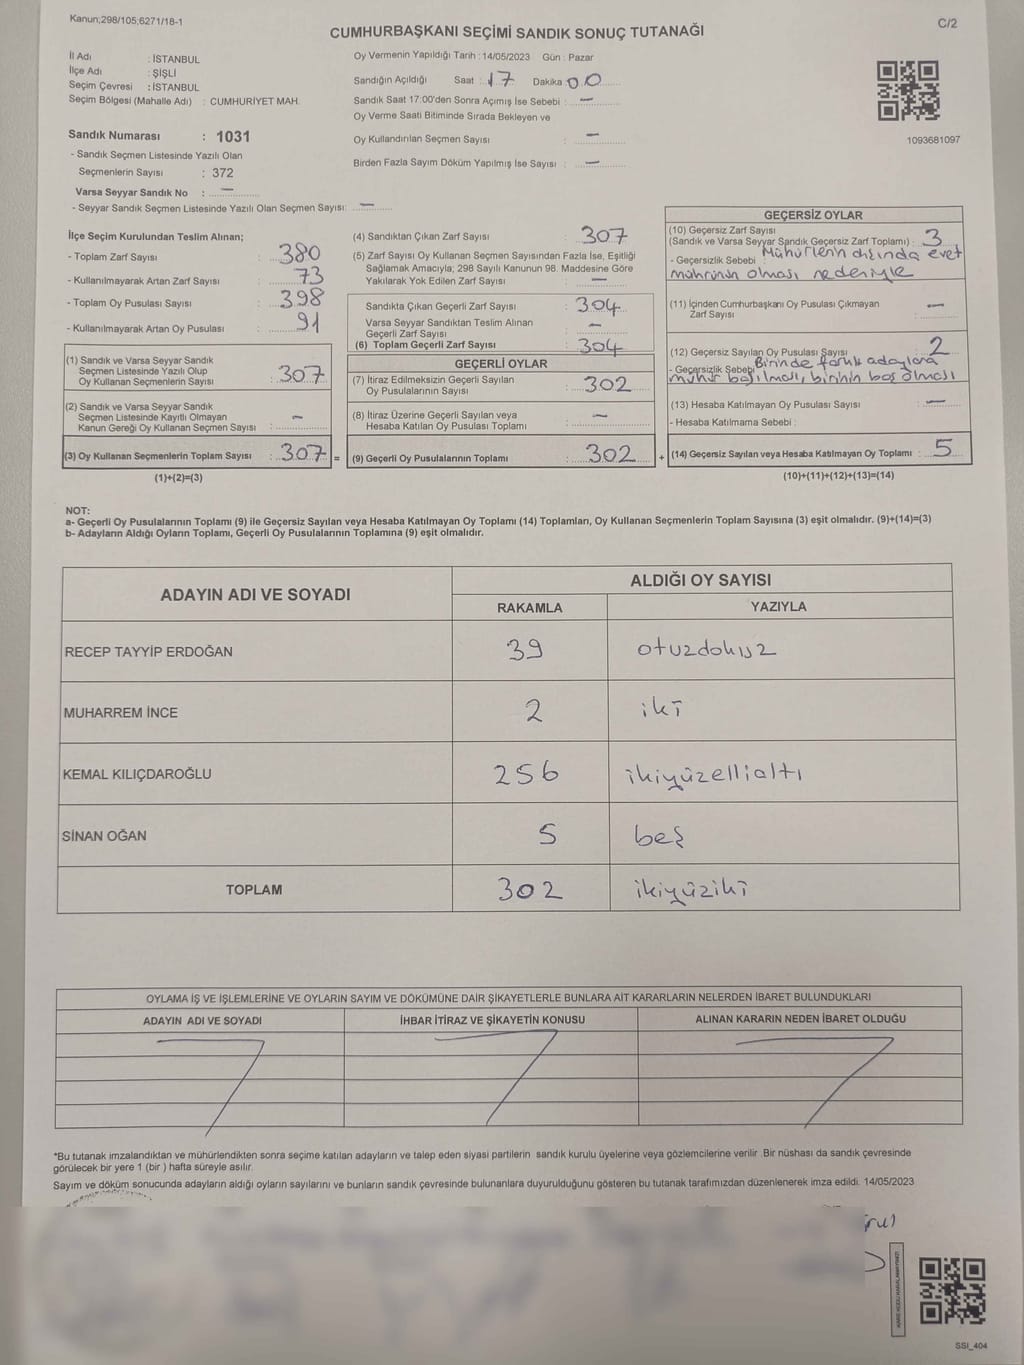 Kanun;298/105;6271/18-1
C/2
CUMHURBAŞKANI SEÇİMİ SANDIK SONUÇ TUTANAĞI
İl Adı : İSTANBUL
İlçe Adı : ŞİŞLİ
Seçim Çevresi : İSTANBUL
Seçim Bölgesi (Mahalle Adı) : CUMHURİYET MAH.
Sandık Numarası : 1031
- Sandık Seçmen Listesinde Yazılı Olan
Seçmenlerin Sayısı : 372
Varsa Seyyar Sandık No : —
- Seyyar Sandık Seçmen Listesinde Yazılı Olan Seçmen Sayısı: —
Oy Vermenin Yapıldığı Tarih : 14/05/2023 Gün : Pazar
Sandığın Açıldığı Saat : 17 Dakika 00
Sandık Saat 17:00'den Sonra Açımış İse Sebebi : —
Oy Verme Saati Bitiminde Sırada Bekleyen ve
Oy Kullandırılan Seçmen Sayısı : —
Birden Fazla Sayım Döküm Yapılmış İse Sayısı : —
1093681097
İlçe Seçim Kurulundan Teslim Alınan;
- Toplam Zarf Sayısı : 380
- Kullanılmayarak Artan Zarf Sayısı : 73
- Toplam Oy Pusulası Sayısı : 398
- Kullanılmayarak Artan Oy Pusulası : 91
(1) Sandık ve Varsa Seyyar Sandık
Seçmen Listesinde Yazılı Olup
Oy Kullanan Seçmenlerin Sayısı : 307
(2) Sandık ve Varsa Seyyar Sandık
Seçmen Listesinde Kayıtlı Olmayan
Kanun Gereği Oy Kullanan Seçmen Sayısı : —
(3) Oy Kullanan Seçmenlerin Toplam Sayısı : 307 =
(1)+(2)=(3)
(4) Sandıktan Çıkan Zarf Sayısı : 307
(5) Zarf Sayısı Oy Kullanan Seçmen Sayısından Fazla İse, Eşitliği
Sağlamak Amacıyla; 298 Sayılı Kanunun 98. Maddesine Göre
Yakılarak Yok Edilen Zarf Sayısı : —
Sandıkta Çıkan Geçerli Zarf Sayısı : 304
Varsa Seyyar Sandıktan Teslim Alınan
Geçerli Zarf Sayısı : —
(6) Toplam Geçerli Zarf Sayısı : 304
GEÇERLİ OYLAR
(7) İtiraz Edilmeksizin Geçerli Sayılan
Oy Pusulalarının Sayısı : 302
(8) İtiraz Üzerine Geçerli Sayılan veya
Hesaba Katılan Oy Pusulası Toplamı : —
(9) Geçerli Oy Pusulalarının Toplamı : 302 +
GEÇERSİZ OYLAR
(10) Geçersiz Zarf Sayısı
(Sandık ve Varsa Seyyar Sandık Geçersiz Zarf Toplamı) : 3
- Geçersizlik Sebebi : Mühürlerin dışında evet
mührünün olması nedeniyle
(11) İçinden Cumhurbaşkanı Oy Pusulası Çıkmayan
Zarf Sayısı : —
(12) Geçersiz Sayılan Oy Pusulası Sayısı : 2
- Geçersizlik Sebebi Birinde farklı adaylara
mühür basılması, birinin boş olması
(13) Hesaba Katılmayan Oy Pusulası Sayısı : —
- Hesaba Katılmama Sebebi :
(14) Geçersiz Sayılan veya Hesaba Katılmayan Oy Toplamı : 5
(10)+(11)+(12)+(13)=(14)
NOT:
a- Geçerli Oy Pusulalarının Toplamı (9) ile Geçersiz Sayılan veya Hesaba Katılmayan Oy Toplamı (14) Toplamları, Oy Kullanan Seçmenlerin Toplam Sayısına (3) eşit olmalıdır. (9)+(14)=(3)
b- Adayların Aldığı Oyların Toplamı, Geçerli Oy Pusulalarının Toplamına (9) eşit olmalıdır.
ADAYIN ADI VE SOYADI
ALDIĞI OY SAYISI
RAKAMLA YAZIYLA
RECEP TAYYİP ERDOĞAN 39 otuzdokuz
MUHARREM İNCE 2 iki
KEMAL KILIÇDAROĞLU 256 ikiyüzellialtı
SİNAN OĞAN 5 beş
TOPLAM 302 ikiyüziki
OYLAMA İŞ VE İŞLEMLERİNE VE OYLARIN SAYIM VE DÖKÜMÜNE DAİR ŞİKAYETLERLE BUNLARA AİT KARARLARIN NELERDEN İBARET BULUNDUKLARI
ADAYIN ADI VE SOYADI İHBAR İTİRAZ VE ŞİKAYETİN KONUSU ALINAN KARARIN NEDEN İBARET OLDUĞU
*Bu tutanak imzalandıktan ve mühürlendikten sonra seçime katılan adayların ve talep eden siyasi partilerin sandık kurulu üyelerine veya gözlemcilerine verilir. Bir nüshası da sandık çevresinde
görülecek bir yere 1 (bir ) hafta süreyle asılır.
Sayım ve döküm sonucunda adayların aldığı oyların sayılarını ve bunların sandık çevresinde bulunanlara duyurulduğunu gösteren bu tutanak tarafımızdan düzenlenerek imza edildi. 14/05/2023
SSI_404